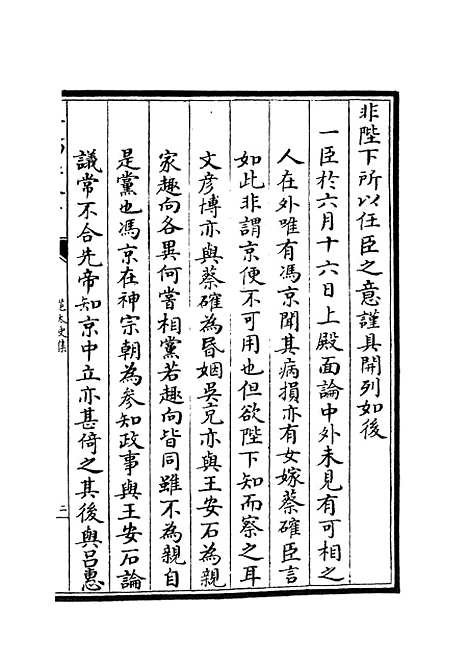 非陛下所以任臣之意謹具開列如後
一臣於六月十六日上殿面論中外未見有可相之
人在外唯有馮京聞其病損亦有女嫁蔡確臣言
如此非謂京便不可用也但欲陛下知而察之耳
文彦博亦與蔡確為昬姻吳充亦與王安石為親
家趣向各異何嘗相黨若趣向皆同雖不為親自
是黨也馮京在神宗朝為參知政事與王安石論
議常不合先帝知京中立亦甚倚之其後與吕惠
范太史集
二